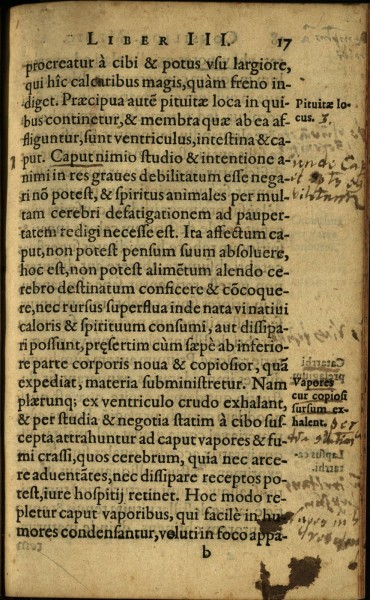 LIBER III. 17
procreatur à cibi & potus vsu largiore,
qui hîc calcaribus magis, quàm freno in-
diget. Præcipua autẽ pituitæ loca in qui-
bus continetur, & membra quæ ab ea af-
fliguntur, sunt ventriculus, intestina & ca-
put. Caput nimio studio & intentione a-
nimi in res graues debilitatum esse nega-
ri nõ potest, & spiritus animales per mul-
tam cerebri defatigationem ad pauper-
tatem redigi necesse est. Ita affectum ca-
put, non potest pensum suum absoluere,
hoc est, non potest alimẽtum alendo ce-
rebro destinatum conficere & cõcoque-
re, nec rursus superflua inde nata vi natiui
caloris & spirituum consumi, aut dissipa-
ri possunt, pręsertim cùm sæpè ab inferio-
re parte corporis noua & copiosior, quã
expediat, materia subministretur. Nam
plærunq; ex ventriculo crudo exhalant,
& per studia & negotia statim à cibo sus-
cepta attrahuntur ad caput vapores & fu-
mi crassi, quos cerebrum, quia nec arce-
re aduentãtes, nec dissipare receptos po-
test, iure hospitij retinet. Hoc modo re-
pletur caput vaporibus, qui facilè in hu-
mores condensantur, veluti in foco appa-
b
Pituitæ lo-
cus.
Vapores
cur copiosi
sursum ex-
halent.